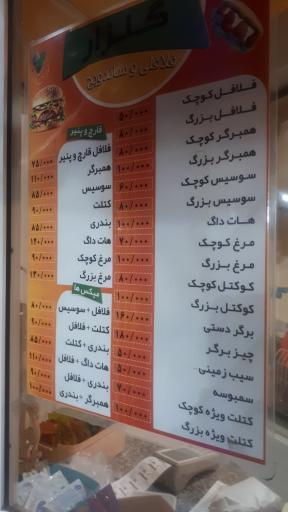 گلزار
فلافل و ساندویچ
فلافل کوچک ۵۰/۰۰۰
فلافل بزرگ ۸۰/۰۰۰
همبرگر کوچک ۸۰/۰۰۰
همبرگر بزرگ ۱۰۰/۰۰۰
سوسیس کوچک ۶۰/۰۰۰
سوسیس بزرگ ۸۰/۰۰۰
هات داگ ۱۰۰/۰۰۰
مرغ کوچک ۷۰/۰۰۰
مرغ بزرگ ۱۰۰/۰۰۰
کوکتل کوچک ۸۰/۰۰۰
کوکتل بزرگ ۱۰۰/۰۰۰
برگر دستی ۱۶۰/۰۰۰
چیز برگر ۱۸۰/۰۰۰
سیب زمینی ۵۰/۰۰۰
سمبوسه ۵۰/۰۰۰
کتلت ویژه کوچک ۷۰/۰۰۰
کتلت ویژه بزرگ ۱۰۰/۰۰۰
قارچ و پنیر
فلافل قارچ و پنیر ۷۵/۰۰۰
همبرگر ۱۱۰/۰۰۰
سوسیس ۸۵/۰۰۰
کتلت ۹۰/۰۰۰
بندری ۸۵/۰۰۰
هات داگ ۱۴۰/۰۰۰
مرغ کوچک ۹۰/۰۰۰
مرغ بزرگ ۱۳۰/۰۰۰
میکس ها
فلافل + سوسیس ۸۰/۰۰۰
کتلت + فلافل ۹۰/۰۰۰
بندری + کتلت ۸۵/۰۰۰
هات داگ + فلافل ۱۱۰/۰۰۰
بندری + فلافل ۹۰/۰۰۰
همبرگر + بندری ۱۰۰/۰۰۰